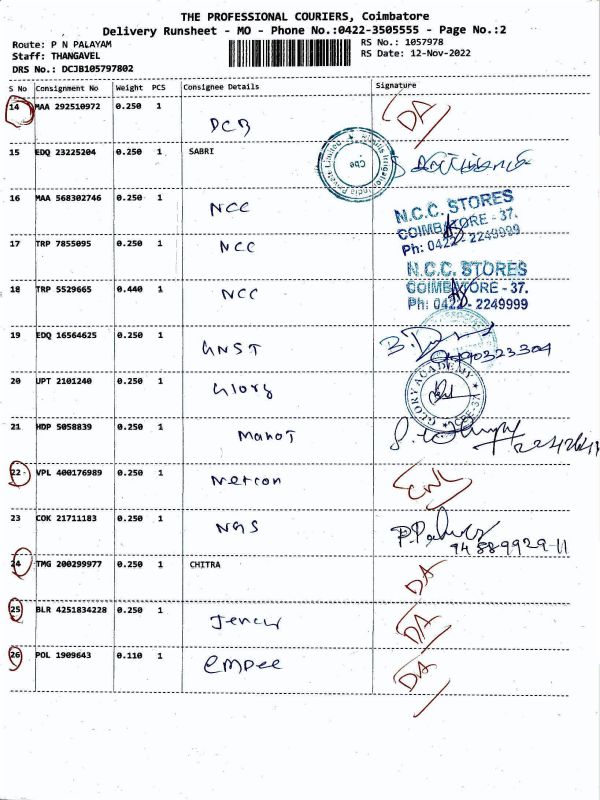 THE PROFESSIONAL COURIERS, Coimbatore
Delivery Runsheet - MO - Phone No.:0422-3505555 - Page No.:2
Route: P N PALAYAM
Staff: THANGAVEL
DRS No.: DCJB105797802
RS No.: 1057978
RS Date: 12-Nov-2022
S No Consignment No Weight PCS Consignee Details Signature
14 MAA 292510972 0.250 1 DCB DA
15 EDQ 23225204 0.250 1 SABRI
16 MAA 568302746 0.250 1 NCC N.C.C. STORES
COIMBATORE - 37.
Ph: 0422 - 2249999
17 TRP 7855095 0.250 1 NCC
N.C.C. STORES
18 TRP 5529665 0.440 1 NCC COIMBATORE - 37.
Ph: 0422 - 2249999
19 EDQ 16564625 0.250 1 GNST
20 UPT 2101240 0.250 1 Glory GLORY ACADEMY
21 HDP 5058839 0.250 1
22 VPL 400176989 0.250 1 Netcon
23 COK 21711183 0.250 1 NGS
24 TMG 200299977 0.250 1 CHITRA DA
25 BLR 4251834228 0.250 1 DA
26 POL 1909643 0.110 1 empee DA